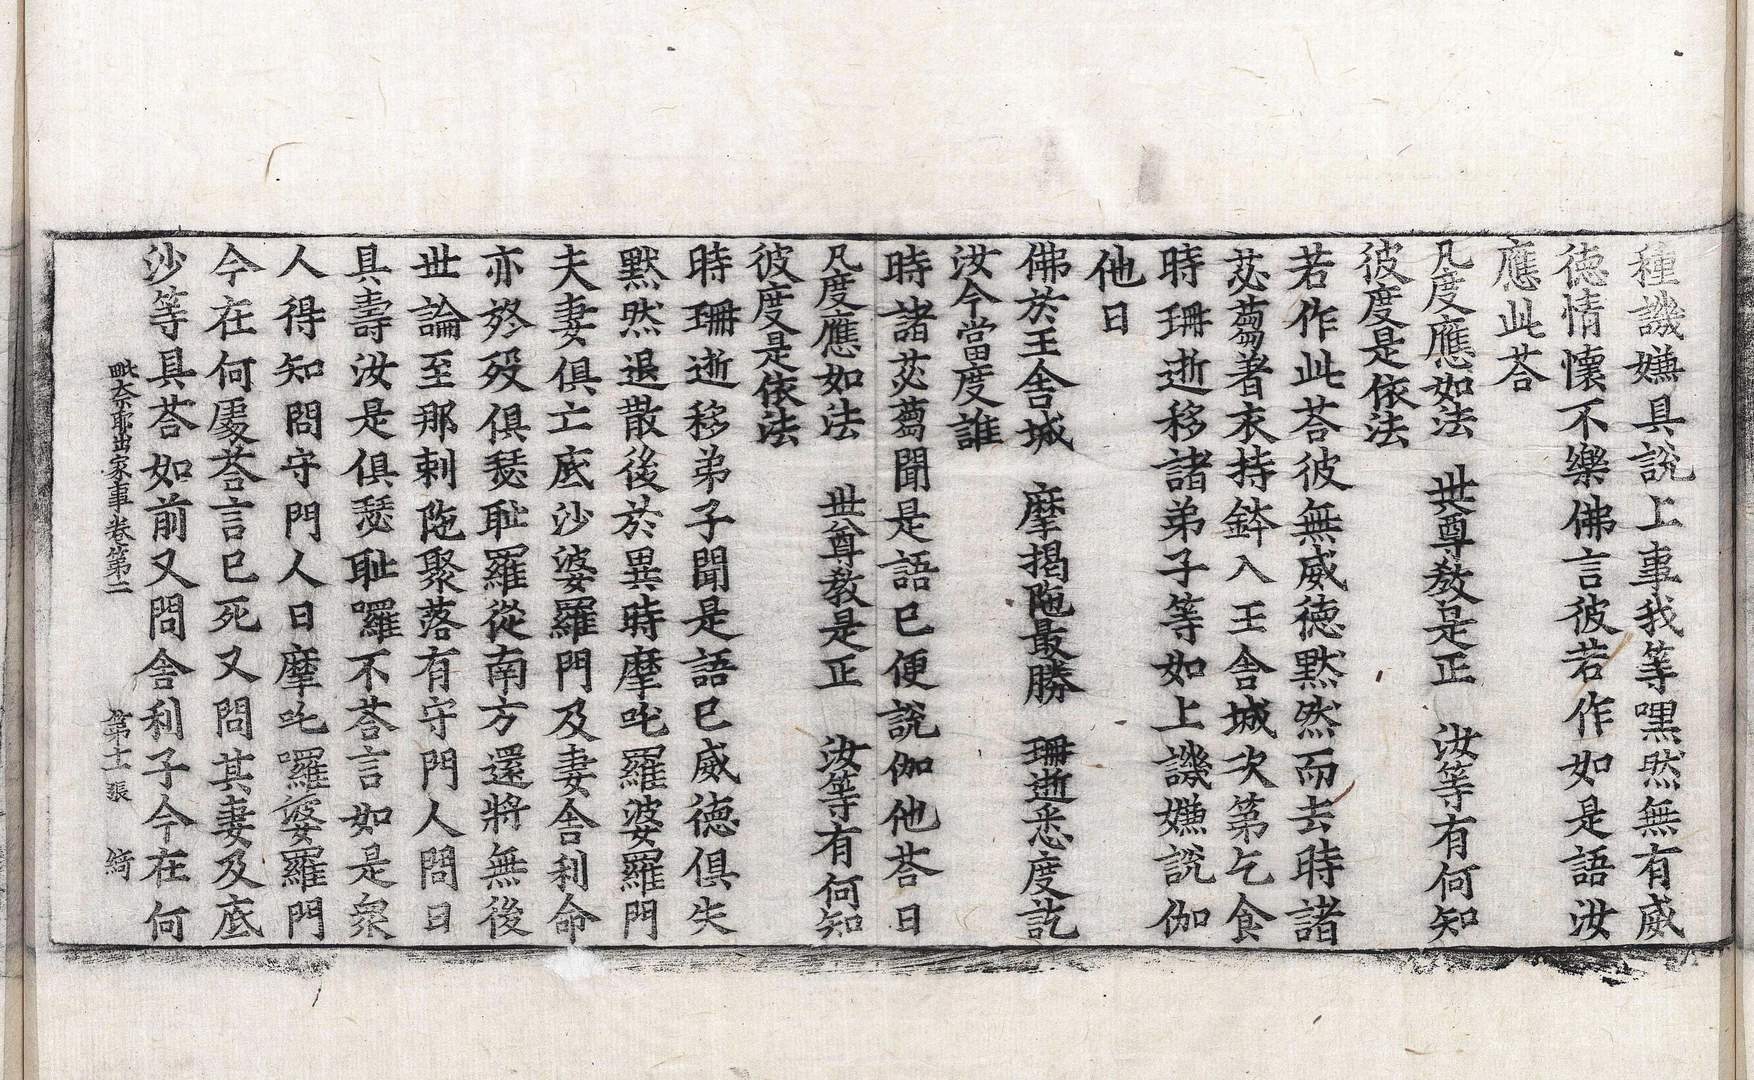 種譏嫌具說上事我等嘿然無有威
德情懷不樂佛言彼若作如是語汝
應此荅
凡度應如法　世尊教是正　汝等有何知
彼度是依法
若作此荅彼無威德默然而去時諸
苾蒭著衣持鉢入王舍城次第乞食
時珊逝移諸弟子等如上譏嫌說伽
他曰
佛於王舍城　摩揭陁最勝　珊逝悉度訖
汝今當度誰
時諸苾蒭聞是語已便說伽他荅曰
凡度應如法　世尊教是正　汝等有何知
彼度是依法
時珊逝移弟子聞是語已威德俱失
默然退散後於異時摩吒羅婆羅門
夫妻俱亡底沙婆羅門及妻舍利命
亦終歿俱瑟耻羅從南方還將無後
世論至那剌陁聚落有守門人問曰
具壽汝是俱瑟耻囉不荅言如是衆
人得知問守門人曰摩吒囉婆羅門
今在何處荅言已死又問其妻及底
沙等具荅如前又問舍利子今在何
毗奈耶出家事卷第二　第十一張　綺